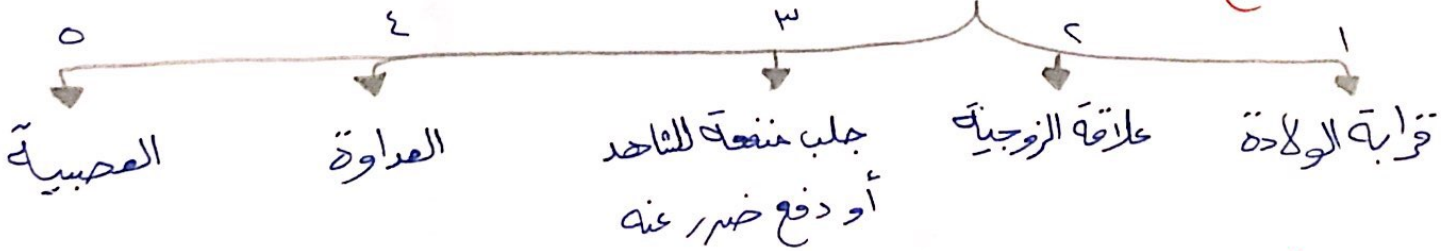 ١ ٢ ٣ ٤ ٥
قرابة الولادة
علاقة الزوجية
جلب منفعة للشاهد
أو دفع ضرر عنه
العداوة
العصبية